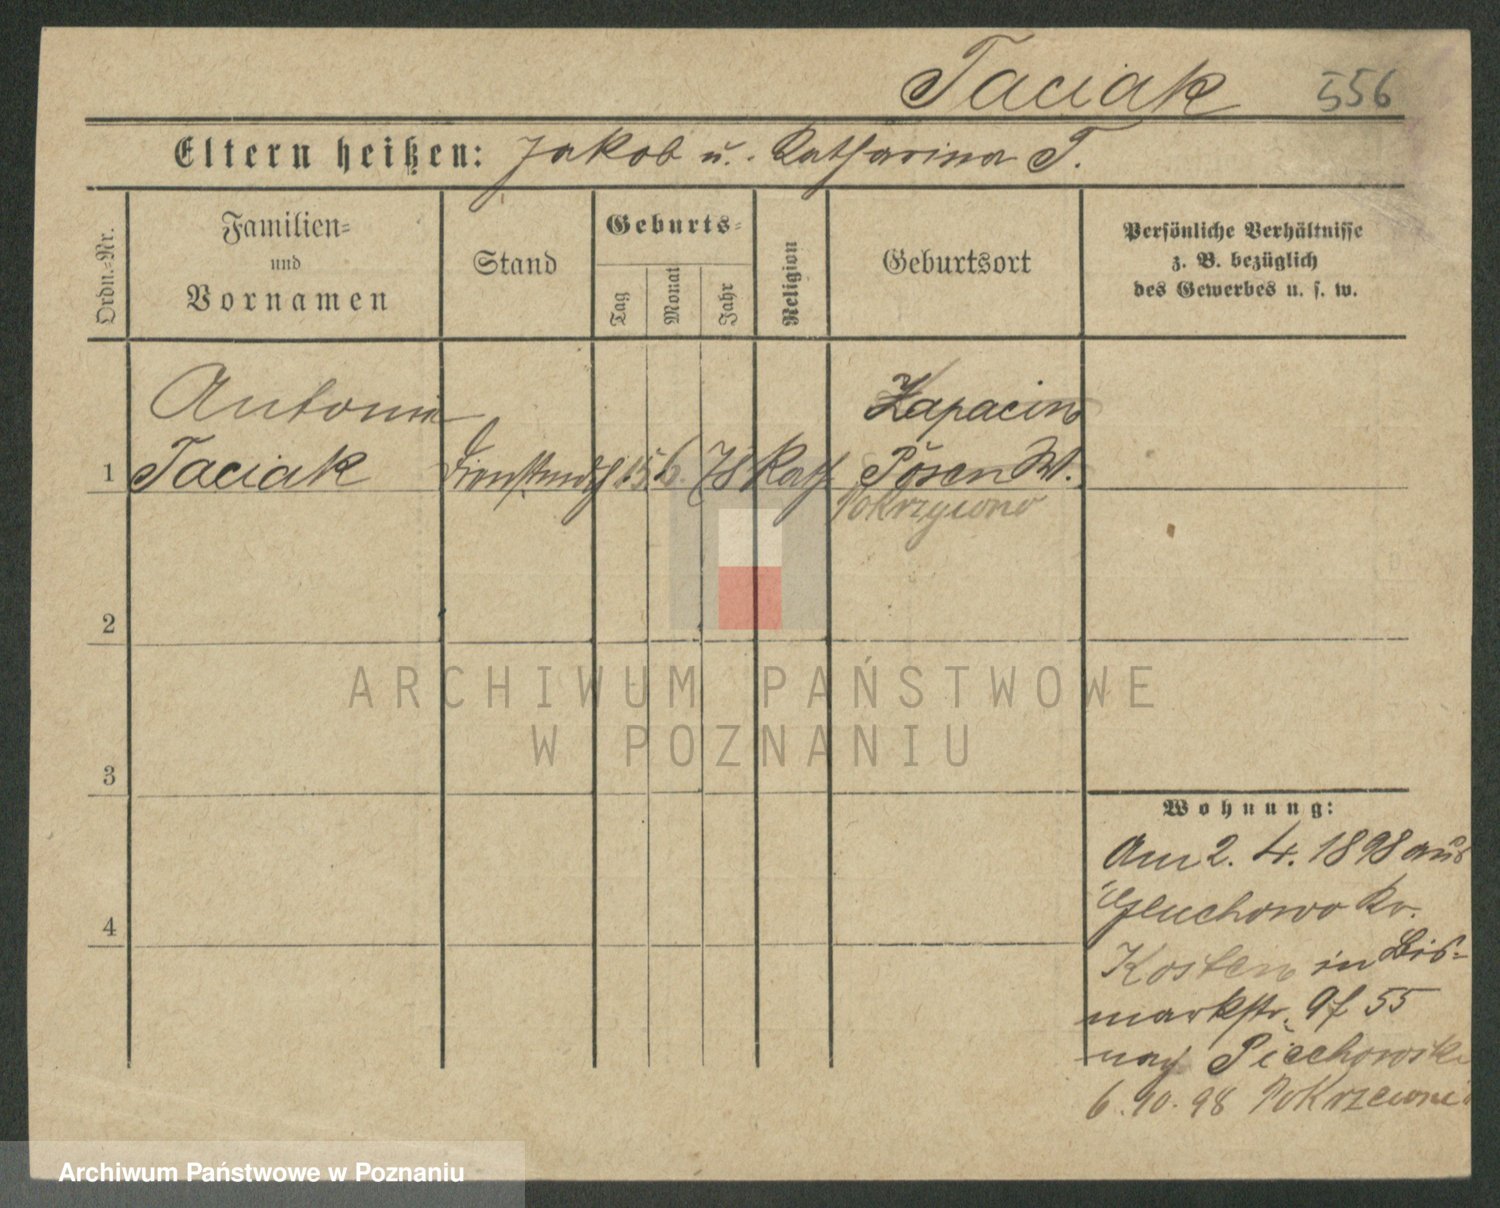 Taciak 556
Eltern heißen: Jakob u. Katharina T.
Ordn.=Nr.
Familien=
und
Vornamen
Stand
Geburts=
Tag
Monat
Jahr
Religion
Geburtsort
Persönliche Verhältnisse
z. B. bezüglich
des Gewerbes u. s. w.
Antonia
Zapacin
1 Taciak Dienstmdch 15. 6. 78 Kath. Posen W.
Pokrzywno
2
ARCHIWUM PAŃSTWOWE
W POZNANIU
3
Wohnung:
Am 2. 4. 1898 aus
Gluchowo Kr.
4
Kosten in Bis=
markstr. 9 f 55
nach Piechowski
6.10.98 Pokrzywno
Archiwum Państwowe w Poznaniu